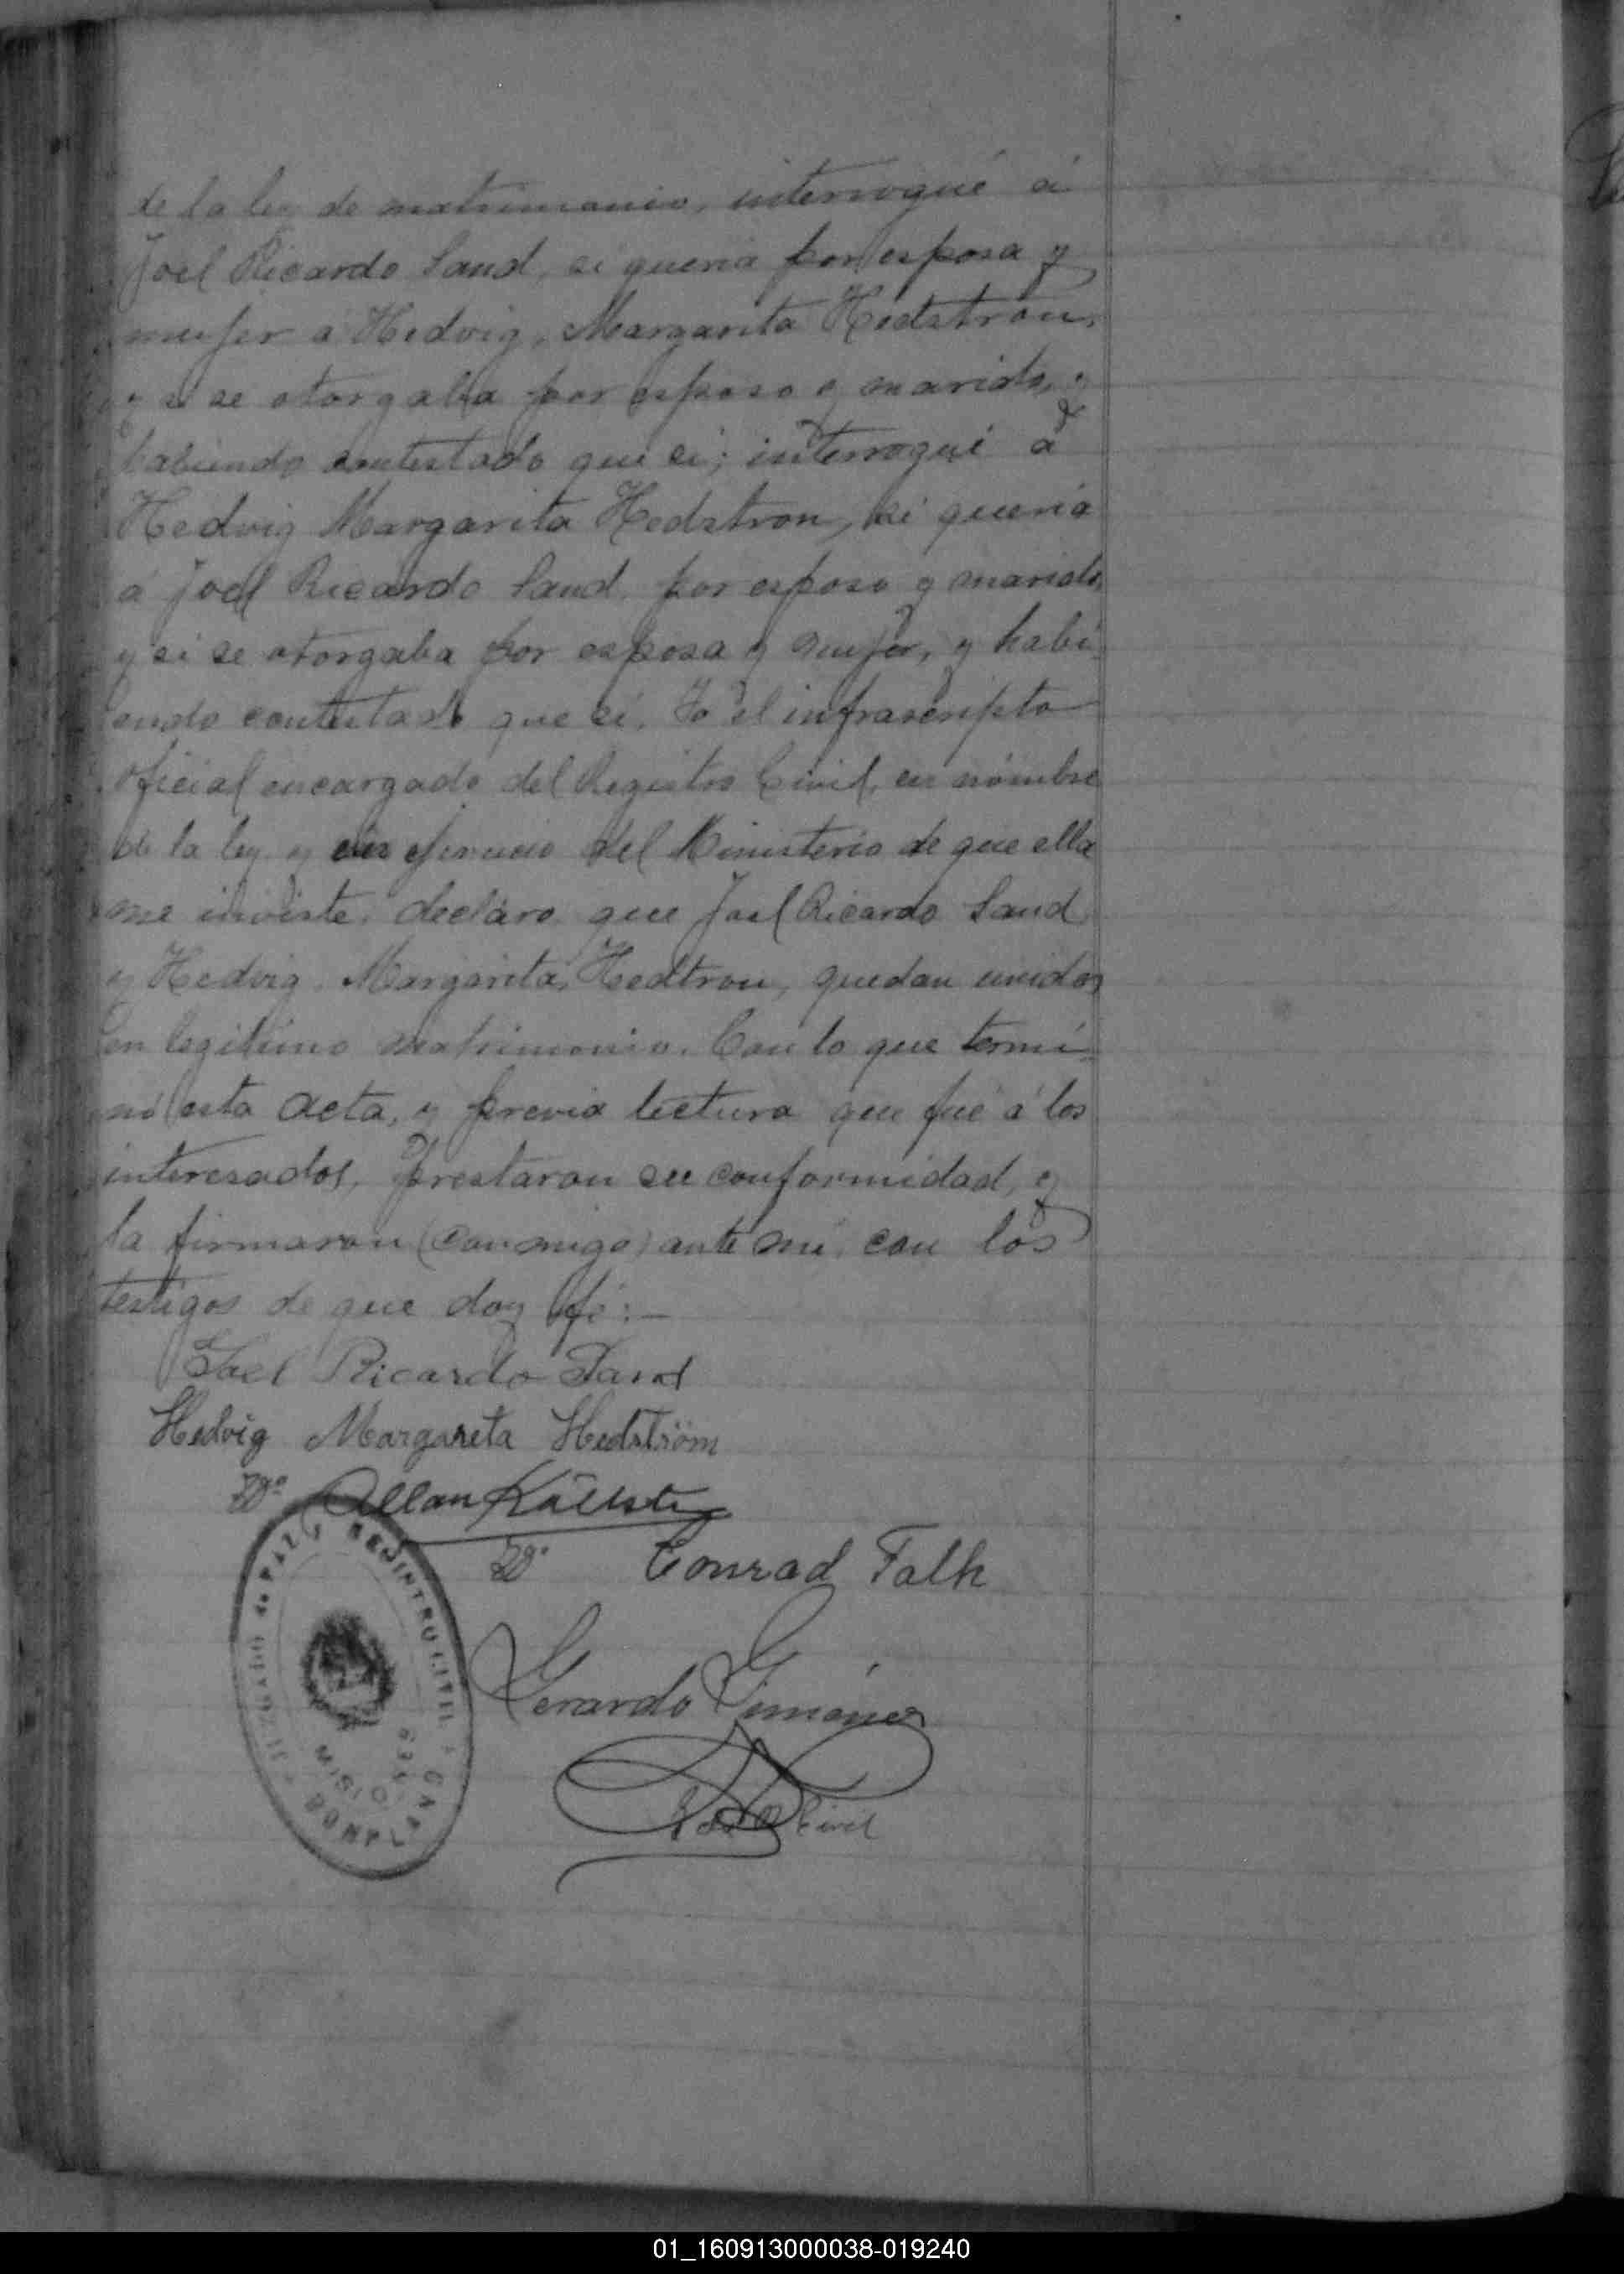 de la ley de matrimonio, interrogué á
Joel Ricardo Sand, si queria por esposa y
mujer á Hedvig, Margarita Hedstron,
y si se otorgaba por esposo y marido, y
habiendo contestado que si; interrogué á
Hedvig Margarita Hedstron, si queria
á Joel Ricardo Sand, por esposo y marido,
y si se otorgaba por esposa y mujer, y habi-
endo contestado que si. Yo el infrascripto
oficial encargado del Registro Civil, en nómbre
de la ley y en ejercicio del Ministerio de que ella
me inviste, decláro que Joel Ricardo Sand
y Hedvig, Margarita, Hedtron, quedan unidos
en legitimo matrimonio. Con lo que termi-
nó esta acta, y previa lectura que fué á los
interesados, prestaron su conformidad, y
la firmaron (conmigo) ante mi, con los
testigos de que doy fé:—
Joel Ricardo Sand
Hedvig Margareta Hedström
Allan
Conrad Falk
Gerardo Gimenez
Civil
JUZGADO de PAZ y REJINTRO CIVIL
MISIONES
BONPLAND
01_160913000038-019240